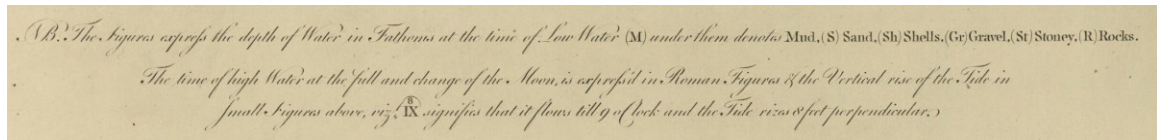 NB. The Figures expreſs the depth of Water in Fathoms at the time of Low Water (M) under them denotes Mud, (S) Sand, (Sh) Shells, (Gr) Gravel, (St) Stoney, (R) Rocks.
The time of high Water at the full and change of the Moon, is expreſs'd in Roman Figures & the Vertical rise of the Tide in
Small Figures above, viz. 8 IX signifies that it flows till 9 o Clock and the Tide rizes 8 feet perpendicular.